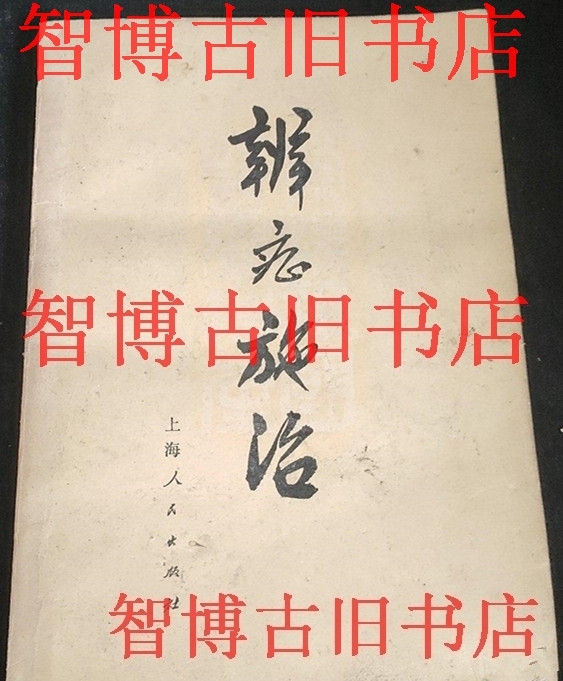 智博古旧书店
辨症施治
智博古旧书店
上海人民出版社
智博古旧书店